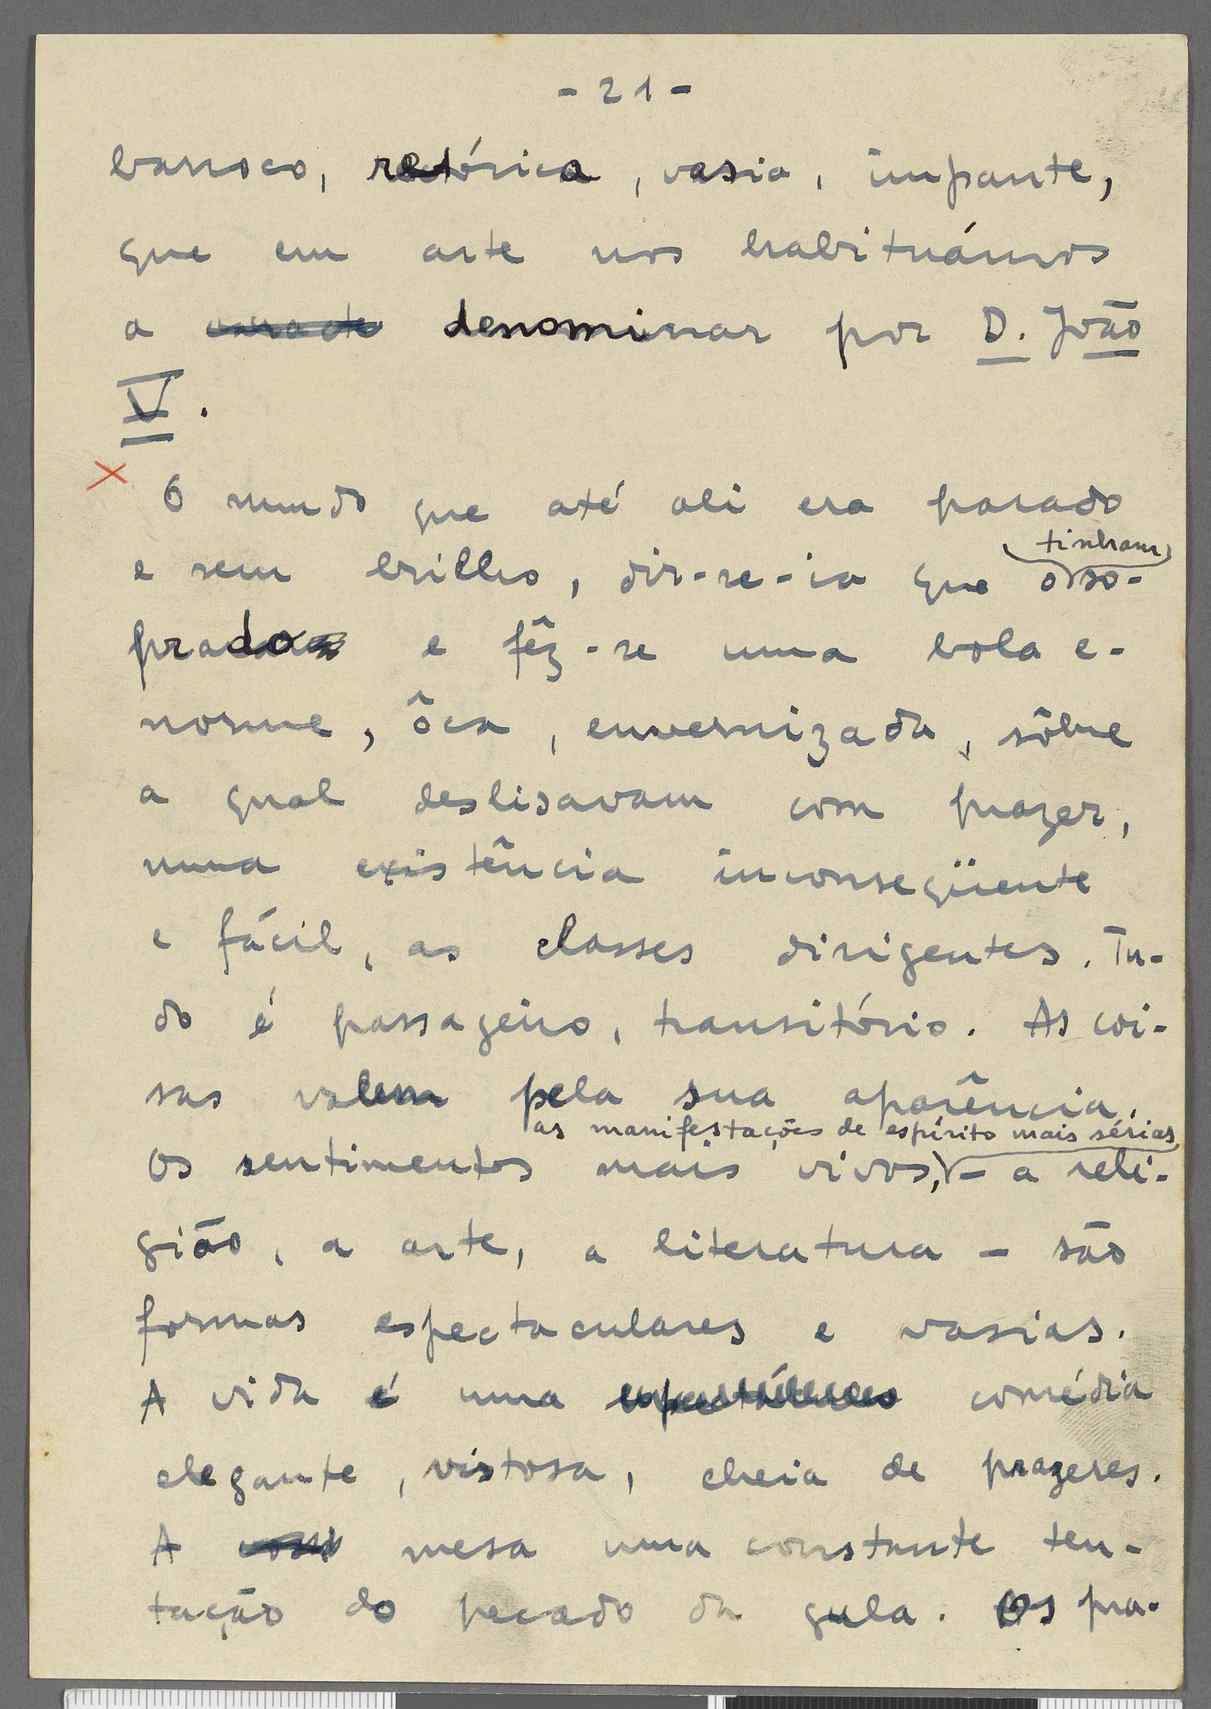 - 21 -
barroco, retórica, vasia, impante,
que em arte nos habituámos
a denominar por D. João
V.
X O mundo que até ali era parado
tinham
e sem brilho, dir-se-ia que o so-
prado e fêz-se uma bola e-
norme, ôca, envernizada, sôbre
a qual deslisavam com prazer,
numa existência inconseqüente
e fácil, as classes dirigentes. Tu-
do é passageiro, transitório. As coi-
sas valem pela sua aparência.
as manifestações de espírito mais sérias
Os sentimentos mais vivos, - a reli-
gião, a arte, a literatura - são
formas espectaculares e vasias.
A vida é uma comédia
elegante, vistosa, cheia de prazeres.
A mesa uma constante ten-
tação do pecado da gula. Os pra-